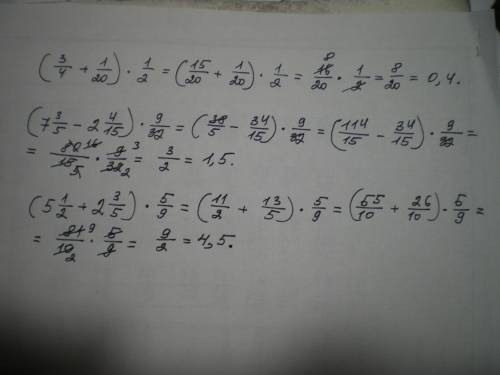 (3/4 + 1/20) · 1/2 = (15/20 + 1/20) · 1/2 = 16 8/20 · 1/2 = 8/20 = 0,4.
(7 3/5 − 2 4/15) · 9/32 = (38/5 − 34/15) · 9/32 = (114/15 − 34/15) · 9/32 =
= 80 16/15 5 · 9 3/32 2 = 3/2 = 1,5.
(5 1/2 + 2 3/5) · 5/9 = (11/2 + 13/5) · 5/9 = (55/10 + 26/10) · 5/9 =
= 81 9/10 2 · 5/9 = 9/2 = 4,5.